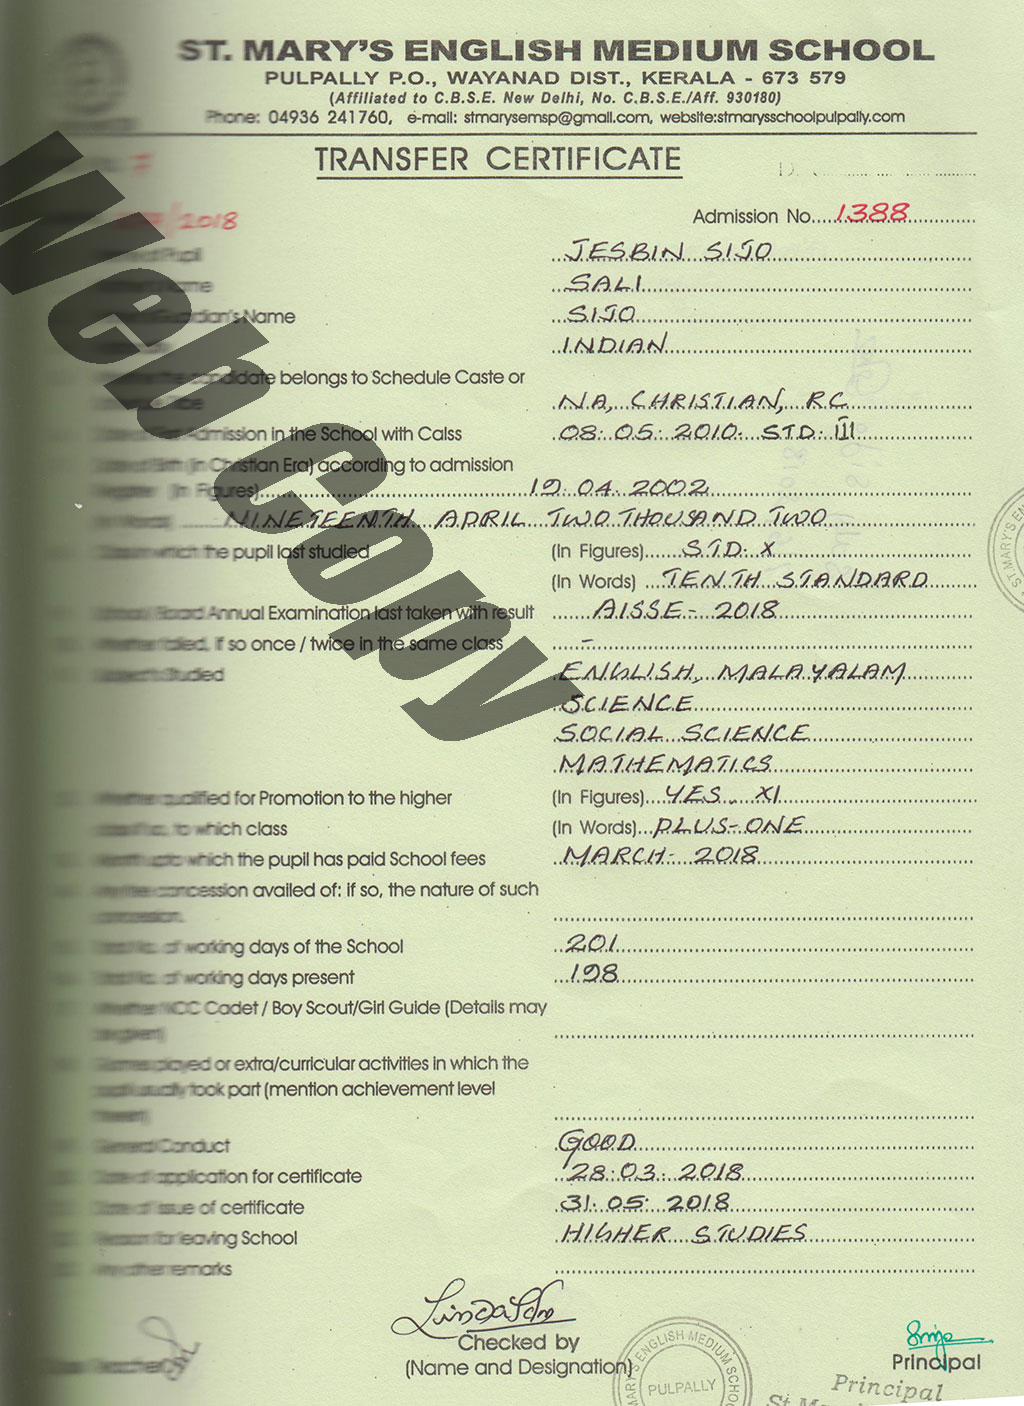 ST. MARY'S ENGLISH MEDIUM SCHOOL
PULPALLY P.O., WAYANAD DIST., KERALA - 673 579
(Affiliated to C.B.S.E. New Delhi, No. C.B.S.E./Aff. 930180)
Phone: 04936 241760, e-mail: stmarysemsp@gmail.com, website:stmarysschoolpulpally.com
TRANSFER CERTIFICATE
/2018 Admission No. 1388
Pupil JESBIN SIJO
Name SALI
Guardian's Name SIJO
INDIAN
the candidate belongs to Schedule Caste or
NA, CHRISTIAN, RC
Admission in the School with Calss 08.05.2010. STD. III
Birth (in Christian Era) according to admission
Register (In Figures) 19.04.2002
(In Words) NINETEENTH APRIL TWO THOUSAND TWO
which the pupil last studied (In Figures) STD. X
(In Words) TENTH STANDARD
Board Annual Examination last taken with result AISSE - 2018
Whether failed, if so once / twice in the same class -
Subjects Studied ENGLISH, MALAYALAM
SCIENCE
SOCIAL SCIENCE
MATHEMATICS
Whether qualified for Promotion to the higher (In Figures) YES, XI
to which class (In Words) PLUS-ONE
upto which the pupil has paid School fees MARCH - 2018
concession availed of: if so, the nature of such
concession.
Total No. of working days of the School 201
Total No. of working days present 198
Whether NCC Cadet / Boy Scout/Girl Guide (Details may
be given)
Games played or extra/curricular activities in which the
pupil usually took part (mention achievement level
General Conduct GOOD
Date of application for certificate 28.03.2018
Date of issue of certificate 31.05.2018
Reason for leaving School HIGHER STUDIES
Any other remarks
Checked by
(Name and Designation)
Principal
Principal
ST. MARY'S
MARY'S ENGLISH MEDIUM SCHOOL
PULPALLY
Web Copy